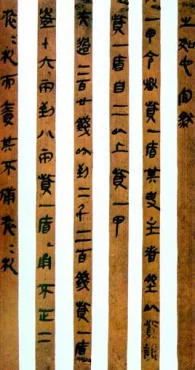 坐之如它官然
一甲令丞貲一盾其吏主者坐以貲誶
貲一盾自二以上貲一甲
夫過二百廿錢以到二千二百錢貲一盾
盈十六兩到八兩貲一盾甬不正二
旅衣札而責其不備旅衣札